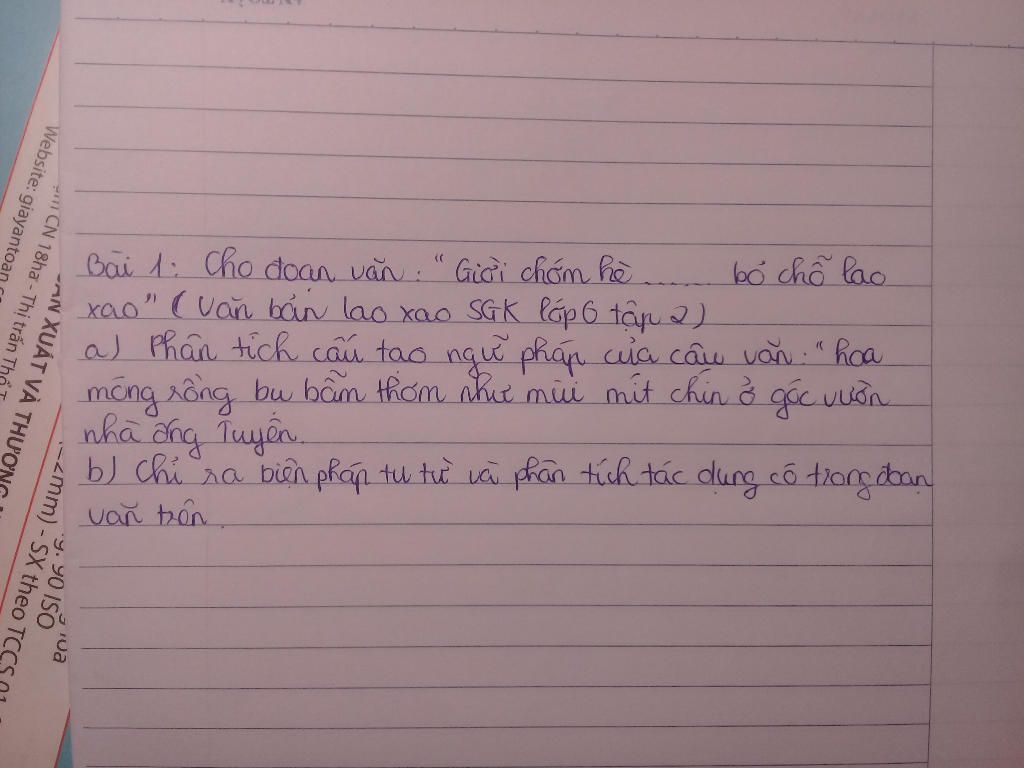 Bài 1: Cho đoạn văn: "Giời chớm hè ...... bỏ chỗ lao
xao" (Văn bản lao xao SGK lớp 6 tập 2)
a) Phân tích cấu tạo ngữ pháp của câu văn: "hoa
móng rồng bụ bẫm thơm như mùi mít chín ở góc vườn
nhà ông Tuyên.
b) Chỉ ra biện pháp tu từ và phân tích tác dụng có trong đoạn
văn trên.
Website: giayantoan.co
CN 18ha - Thị trấn Thổ T
XUẤT VÀ THƯƠNG
mm) - SX theo TCCS 01
90 ISO